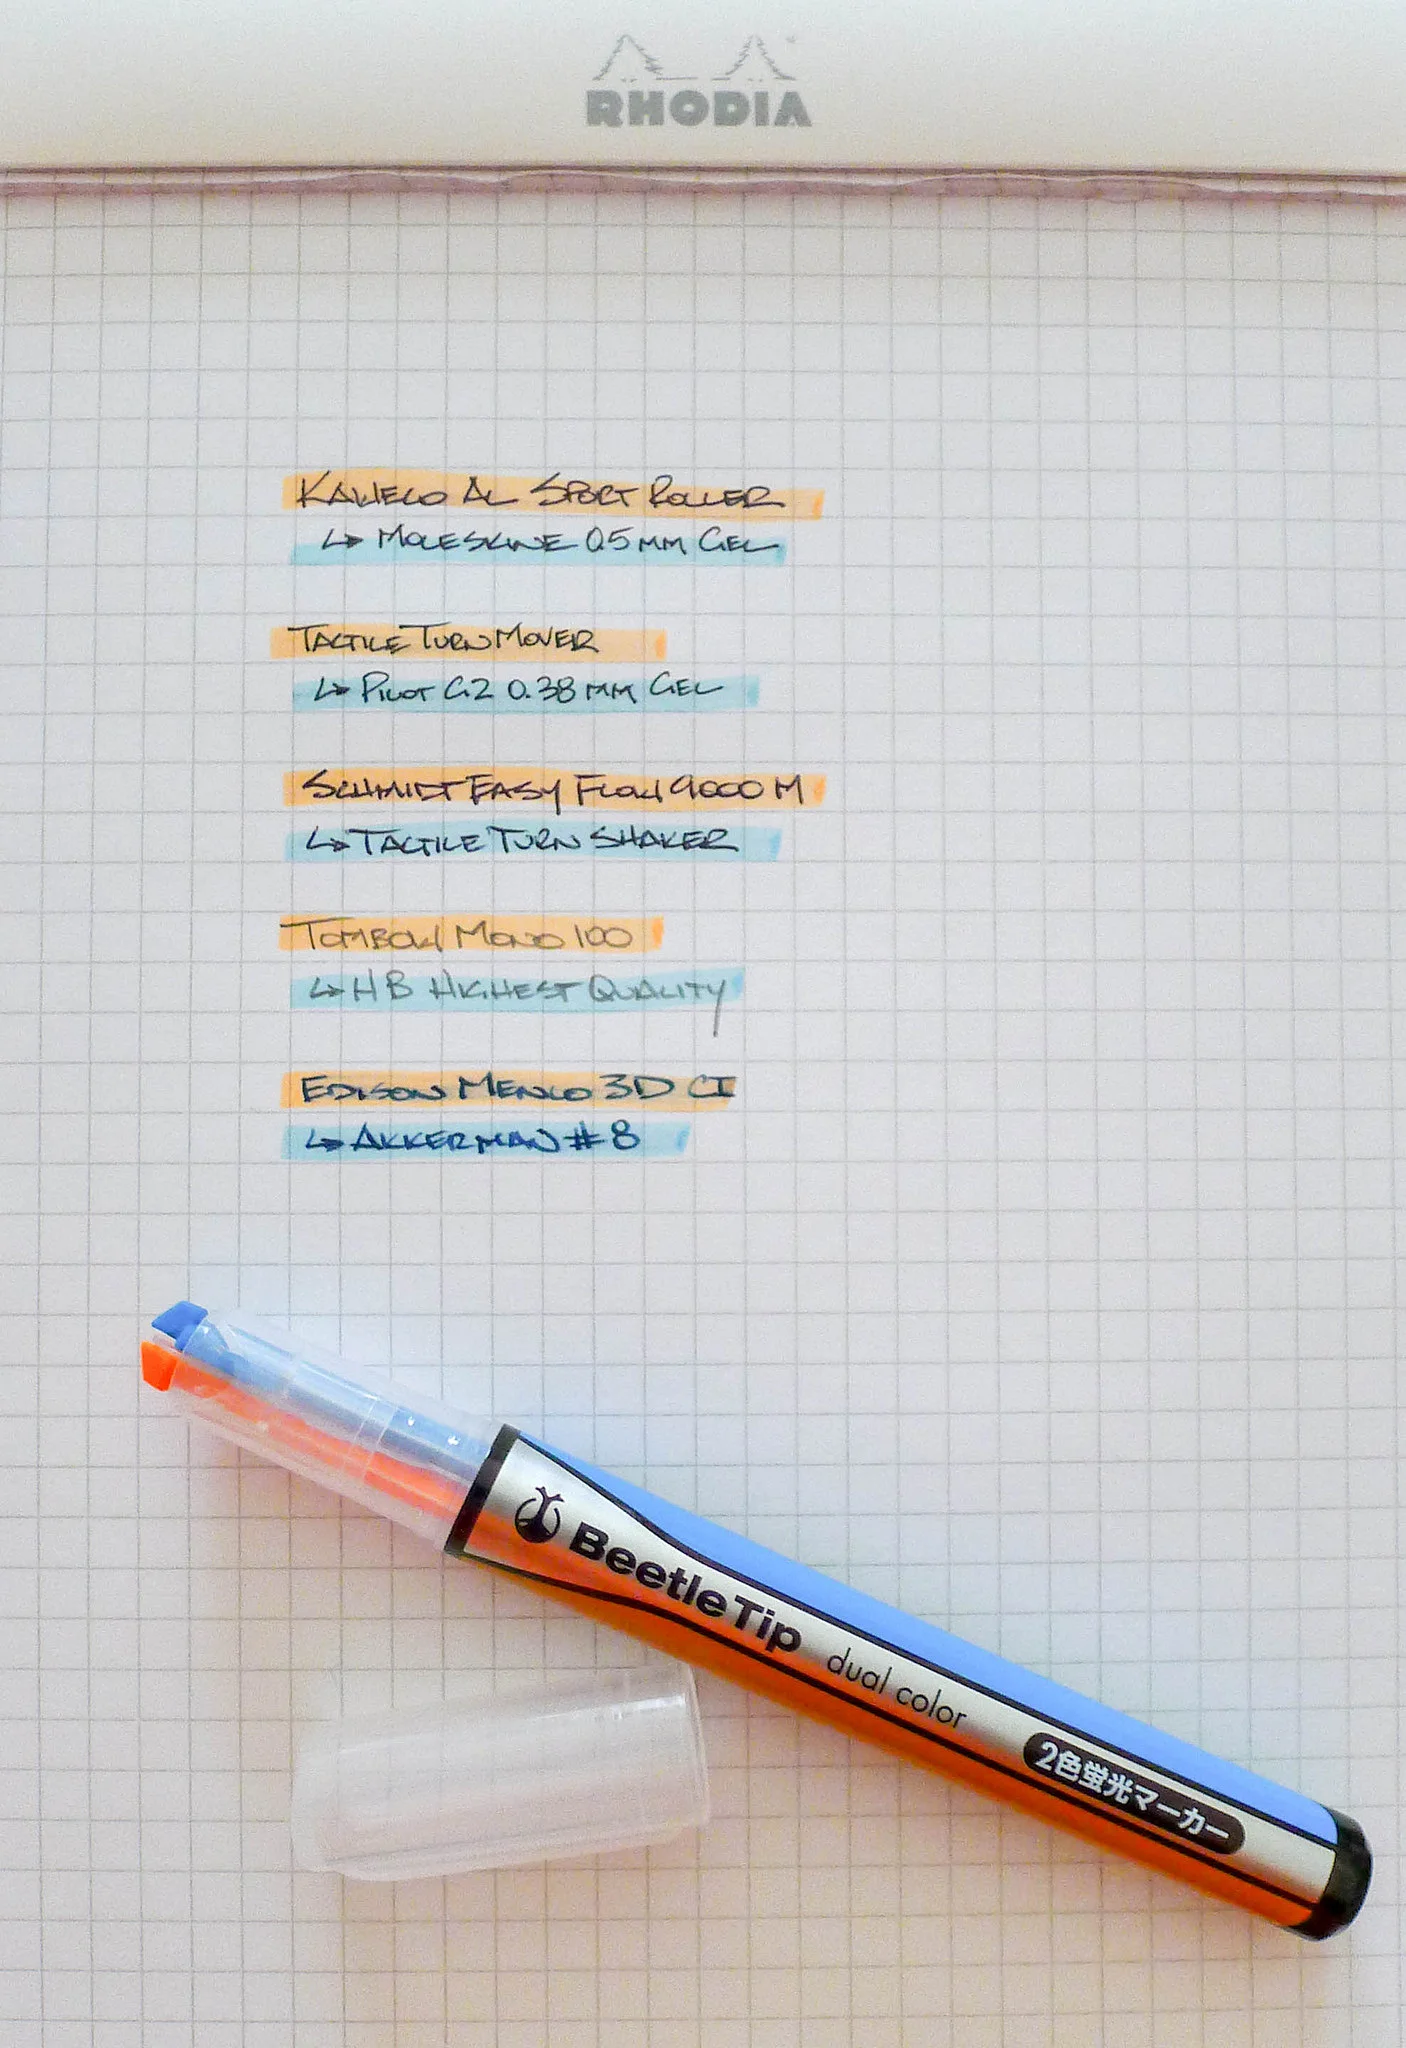 RHODIA
KAWECO AL SPORT ROLLER
↳ MOLESKINE 0.5 MM GEL
TACTILE TURN MOVER
↳ PILOT G2 0.38 MM GEL
SCHMIDT EASY FLOW 9000 M
↳ TACTILE TURN SHAKER
TOMBOW MONO 100
↳ HB HIGHEST QUALITY
EDISON MENLO 3D CI
↳ AKKERMAN #8
BeetleTip dual color
2色蛍光マーカー